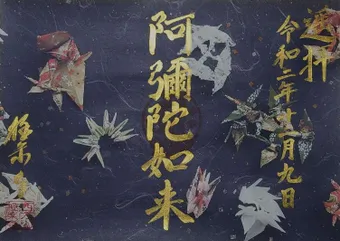 奉拝
令和二年十一月九日
阿彌陀如来